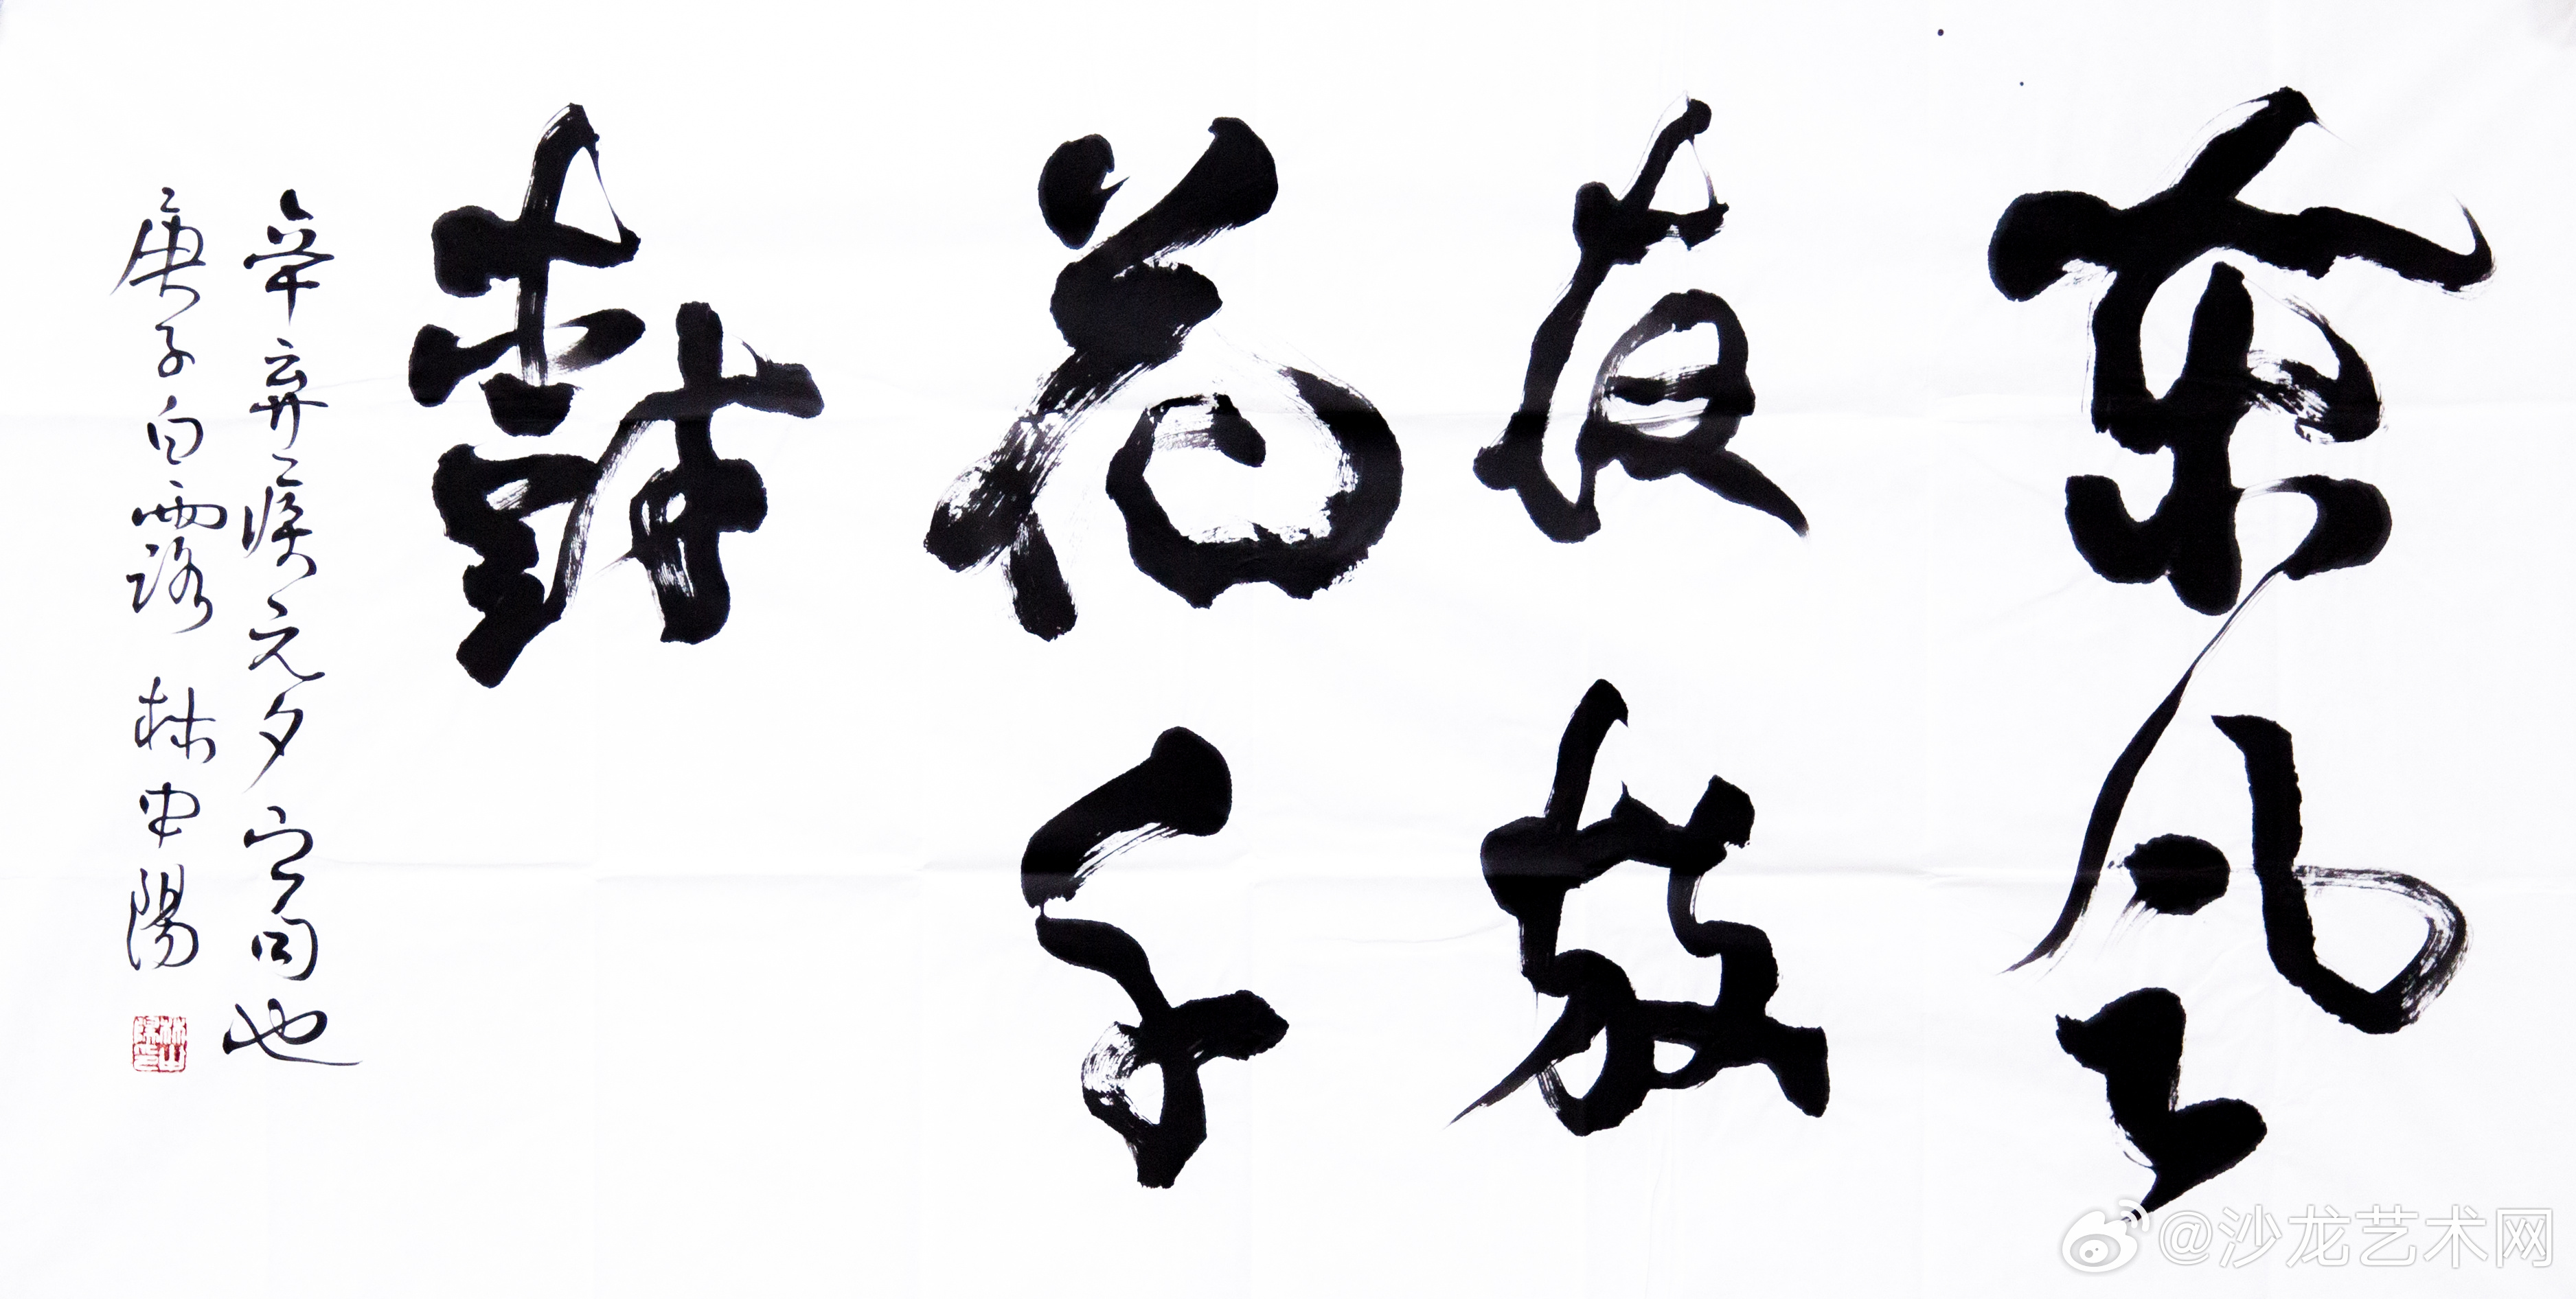 東風
夜放
花千
樹
辛弃疾元夕句也
庚子白露 林中陽
@沙龙艺术网